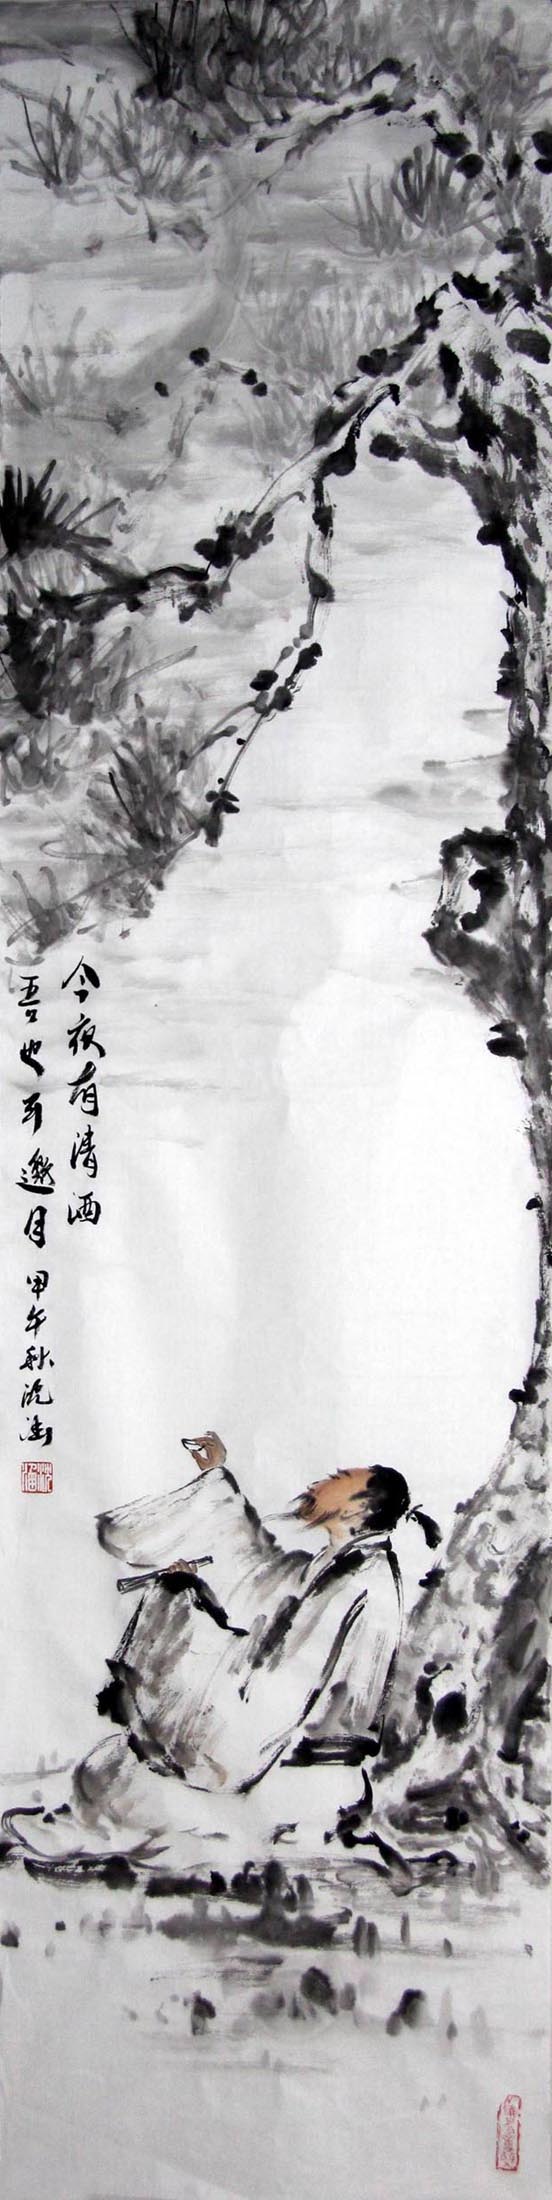 今夜有清酒
吾也可邀月 甲午秋沈